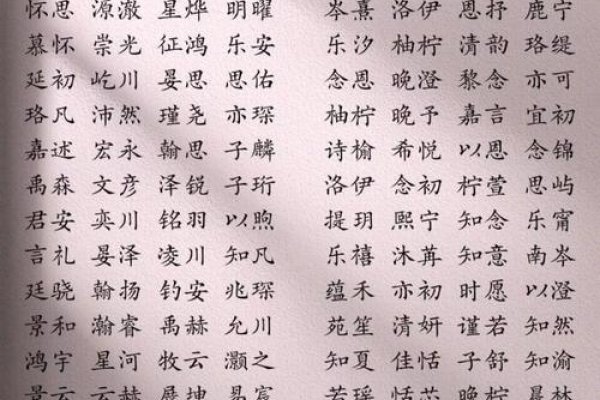 怀思 源澈 星烨 明曜 岑熹 洛伊 恩抒 鹿宁
慕怀 崇光 征鸿 乐安 乐汐 柚柠 清韵 珞缇
延初 屹川 晏思 思佑 念恩 晚澄 黎念 亦可
珞凡 沛然 瑾尧 亦琛 柚柠 晚予 嘉言 宜初
嘉述 宏永 翰思 子麟 诗榆 希悦 以恩 念锦
禹森 文彦 泽锐 子珩 洛伊 念初 柠萱 思屿
君安 奕川 铭羽 以煦 提玥 熙宁 知念 乐甯
言礼 晏泽 凌川 知凡 乐禧 沐苒 知意 南岑
廷骁 翰扬 钧安 兆琛 蕴禾 亦初 时愿 以澄
景和 瀚睿 禹赫 允川 苑笙 清妍 谨若 知然
鸿宇 星河 牧云 灏之 知夏 佳恬 子舒 知渝
景云 云赫 晟坤 易宸 若瑶 恬芯 晚柠